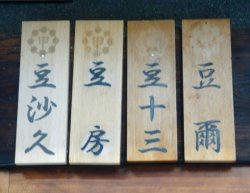 豆爾
豆十三
豆房
豆沙久